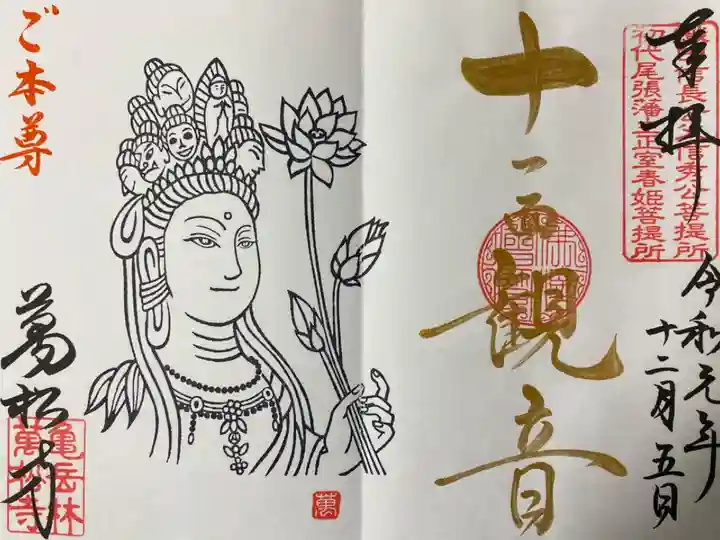 奉拝
信長
信秀公菩提所
初代尾張藩主正室春姫菩提所
令和元年
十二月五日
十一面観音
ご本尊
萬松寺
龜岳林
萬松寺
萬